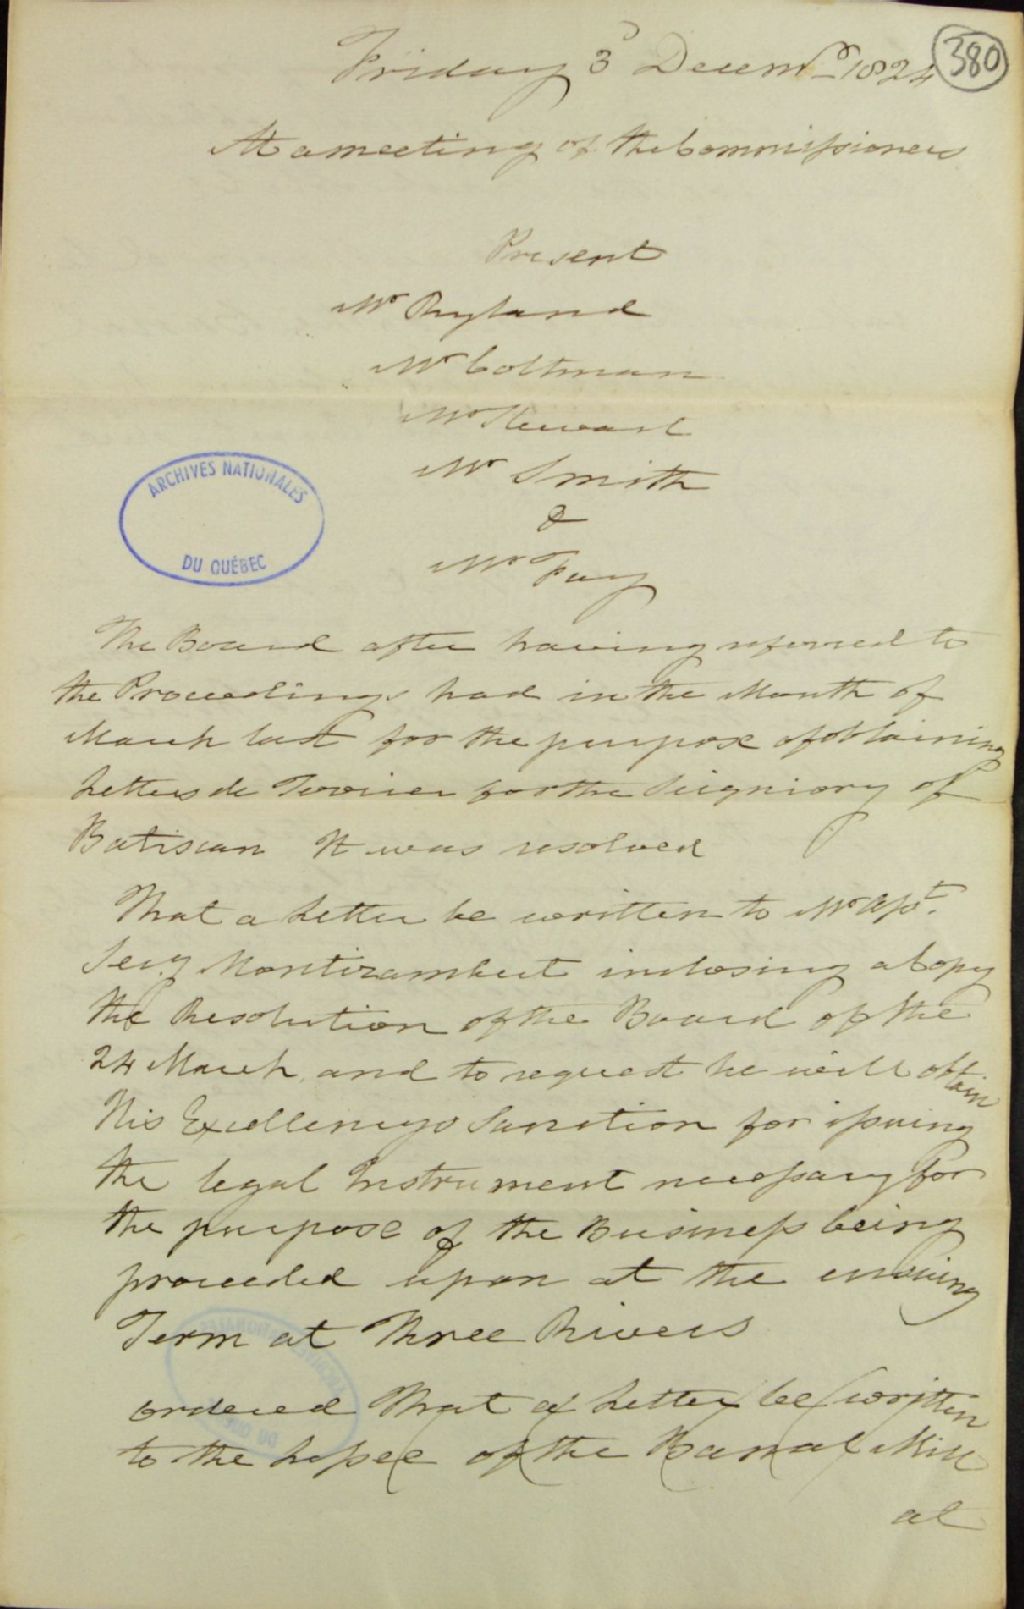 380
Friday 3d Decemr 1824
At a meeting of the Commissioners
Present
Mr Ryland
Mr Coltman
Mr Stewart
Mr Smith
&
Mr Fay
ARCHIVES NATIONALES
DU QUÉBEC
The Board after having referred to
the Proceedings had in the Month of
March last for the purpose of obtaining
Letters de Terrier for the Seigniory of
Batiscan It was resolved
That a Letter be written to Mr Asst.
Secy Montizambert inclosing a Copy
the Resolution of the Board of the
24 March and to request he will obtain
His Excellencys Sanction for issuing
the legal Instrument necessary for
the purpose of the Business being
proceeded upon at the ensuing
Term at Three Rivers
ordered That a Letter be written
to the Lessee of the Banal Mill
at